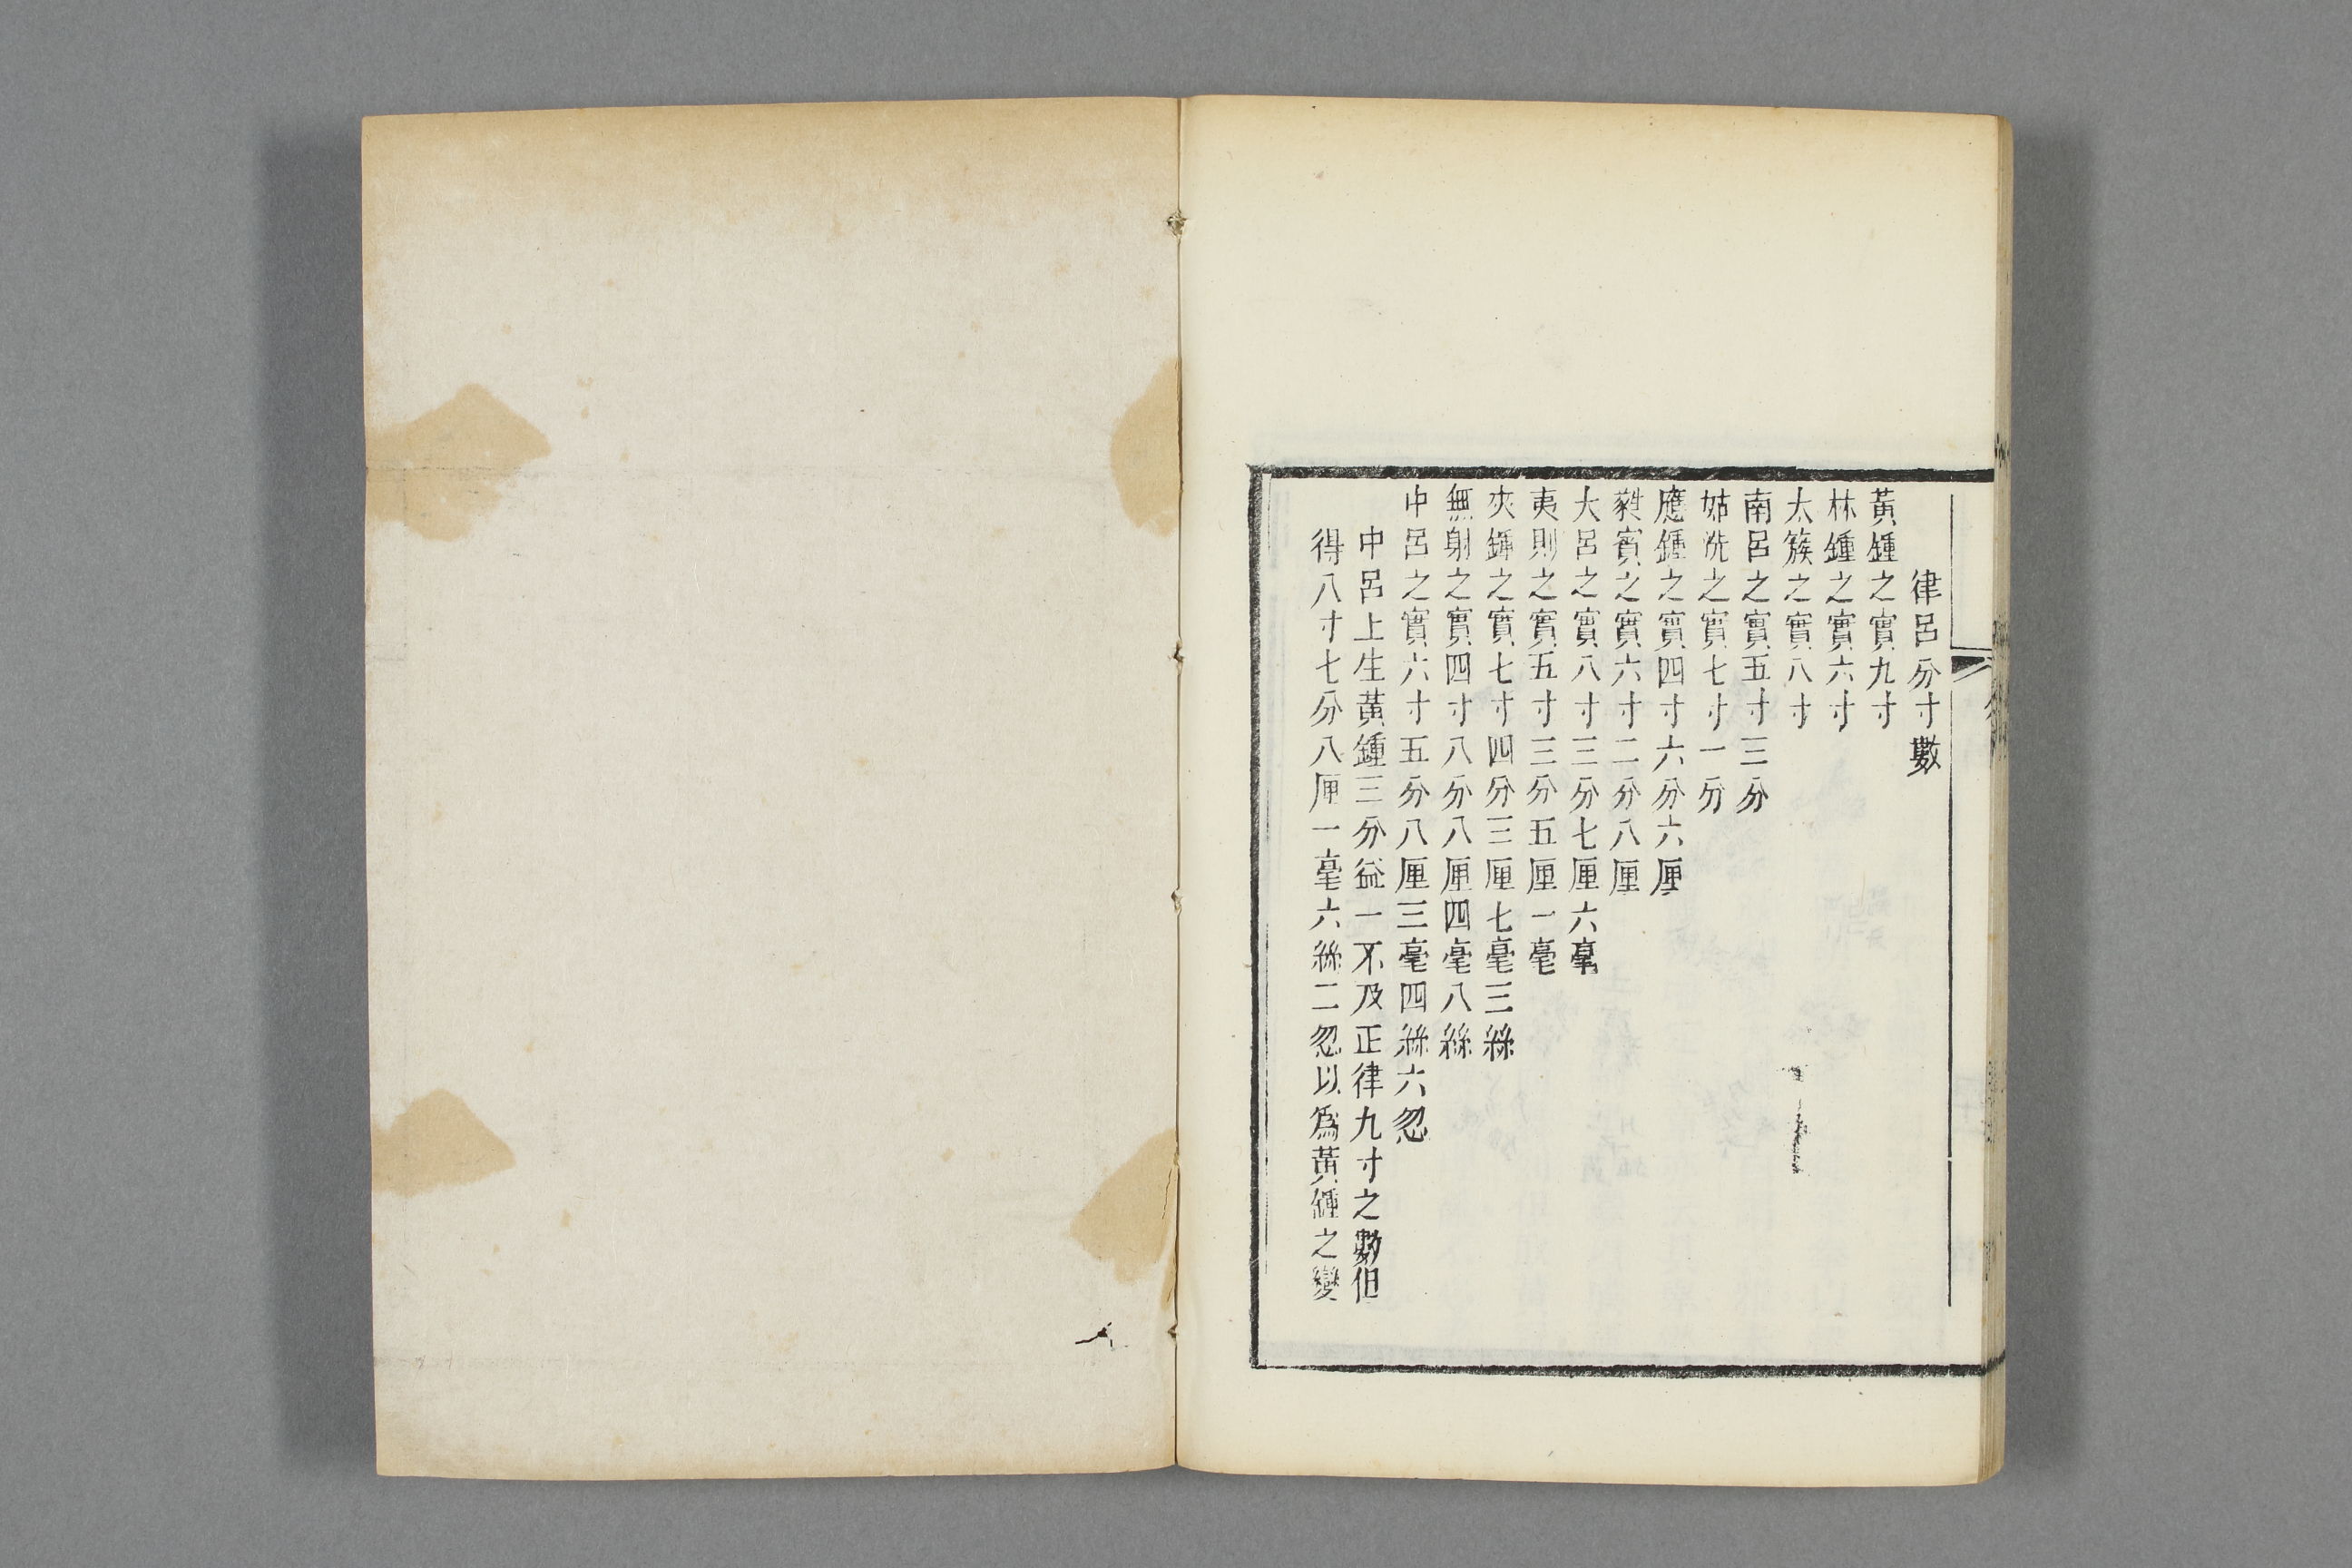 律呂分寸數
黃鍾之實九寸
林鍾之實六寸
太簇之實八寸
南呂之實五寸三分
姑洗之實七寸一分
應鍾之實四寸六分六厘
蕤賓之實六寸二分八厘
大呂之實八寸三分七厘六毫
夷則之實五寸三分五厘一毫
夾鍾之實七寸四分三厘七毫三絲
無射之實四寸八分八厘四毫八絲
中呂之實六寸五分八厘三毫四絲六忽
中呂上生黃鍾三分益一不及正律九寸之數但
得八寸七分八厘一毫六絲二忽以爲黃鍾之變